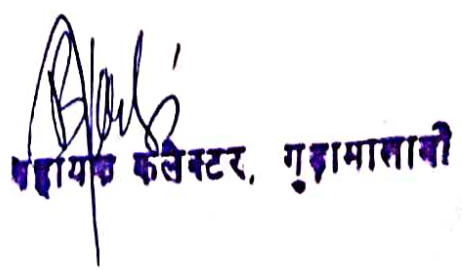 सहायक कलेक्टर, गुढ़ामालानी